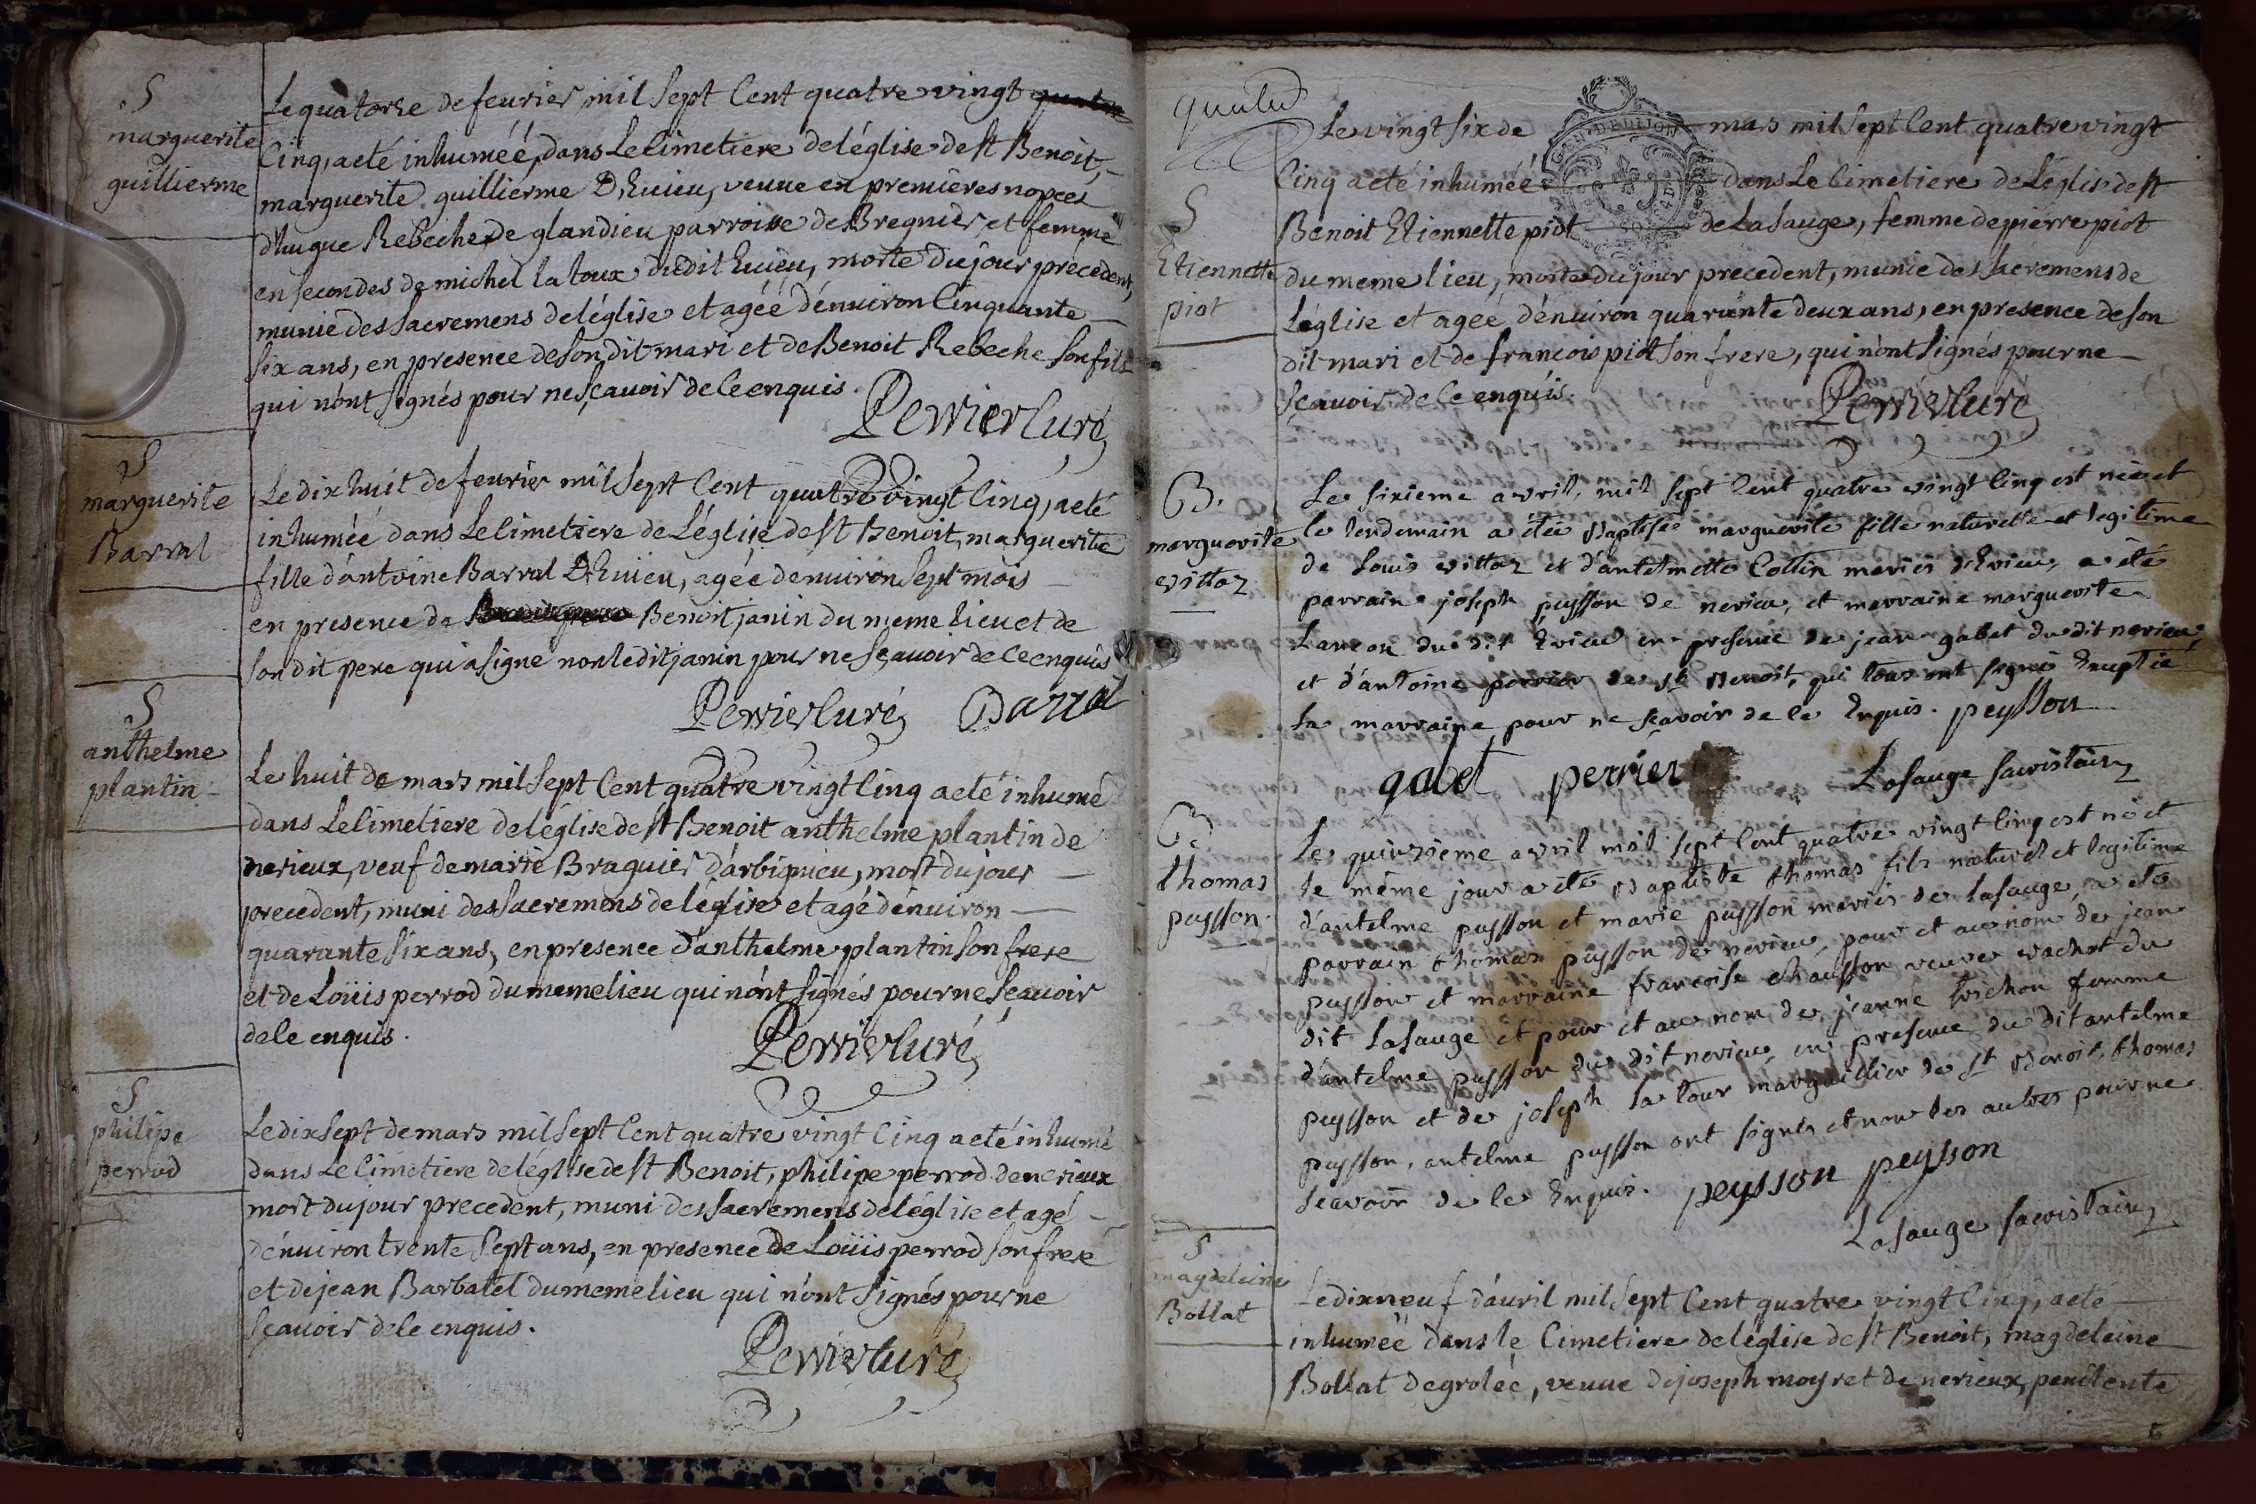 S
marguerite
guillierme
Le quatorse de feurier mil sept Cent quatre vingt quatre
Cinq, a eté inhuméé, dans Le Cimetiere de léglise de st Benoit,
marguerite guillierme D'Euieu, veuue en premieres nopces
d'hugue Rebeche de glandieu parroisse de Bregnier, et femme
en secondes de michel la toux dudit Euieu, morte du jour precedent,
munie des sacremens de léglise et agéé d'énuiron Cinquante
six ans, en presence de son dit mari et de Benoit Rebeche son fils
qui n'ont signés pour ne sçauoir de ce enquis.
Perrier Curé
S
marguerite
Barral
Le dix huit de feurier mil sept Cent quatre vingt Cinq, a eté
inhuméé dans Le Cimetiere de L'église de st Benoit, marguerite
fille d'antoine Barral D'Euieu, agéé d'enuiron sept mois
en presence de Benoit janin du meme Lieu et de
son dit pere qui a signe non ledit janin pour ne sçauoir de ce enquis
Perrier Curé Barral
S
anthelme
plantin
Le huit de mars mil sept Cent quatre vingt Cinq a eté inhumé
dans Le Cimetiere de léglise de st Benoit anthelme plantin de
nerieux, veuf de marie Braguier d'arbignieu, mort du jour
precedent, muni des sacremens de léglise et agé d'énuiron
quarante six ans, en presence d'anthelme plantin son frere
et de Loüis perrod du meme lieu qui n'ont signés pour ne sçauoir
de ce enquis.
Perrier Curé
S
philipe
perrod
Le dix sept de mars mil sept Cent quatre vingt Cinq a eté inhumé
dans Le Cimetiere de léglise de st Benoit, philipe perrod de nerieux
mort du jour precedent, muni des sacremens de léglise et agé
d'énuiron trente sept ans, en presence de Loüis perrod son frere
et de jean Barbatel du meme lieu qui n'ont signés pour ne
sçauoir de ce enquis.
Perrier Curé
S
Etiennette
piot
GEN. DE DIJON
Le vingt six de mars mil sept Cent quatre vingt
Cinq a eté inhuméé dans Le Cimetiere de Léglise de st
Benoit Etiennette piot de La sauge, femme de pierre piot
du meme lieu, morte du jour precedent, munie des sacremens de
L'église et agéé d'énuiron quarante deux ans, en presence de son
dit mari et de francois piot son frere, qui n'ont signés pour ne
sçauoir de ce enquis.
Perrier Curé
B.
marguerite
vittoz
Le sixieme avril, mil sept Cent quatre vingt Cinq est née et
le lendemain a étée Baptisée marguerite fille naturelle et legitime
de Louis vittoz et d'antelmette Collin mariés d'Evieu, a été
parrain joseph peysson de nerieu, et marraine marguerite
Lancon du dit Evieu en presence de jean gabet du dit nerieu,
et d'antoine perrier de st Benoit, qui tous ont signé Excepté
la marraine pour ne sçavoir de ce Enquis. peysson
gabet perrier Lasauge sacristain
B.
thomas
peysson.
Le quinzieme avril mil sept Cent quatre vingt Cinq est né et
le même jour a été Baptisté thomas fils naturel et legitime
d'antelme peysson et marie peysson mariés de lasauge, a été
parrain thomas peysson de nerieu, pour et au nom de jean
peysson et marraine francoise chausson veuve vachot du
dit Lasauge et pour et au nom de jeanne trichon femme
d'antelme peysson du dit nerieu, en presence du dit antelme
peysson et de joseph la tour marguillier de st Benoit, thomas
peysson, antelme peysson ont signés et non les autres pour ne
sçavoir de ce Enquis. peysson peysson
Lasauge sacristain
S
magdeleine
Bollat
Le dix neuf d'auril mil sept Cent quatre vingt Cinq, a eté
inhuméé dans le Cimetiere de léglise de st Benoit, magdeleine
Bollat de groléé, veuue de joseph moyret de nerieux, penitente